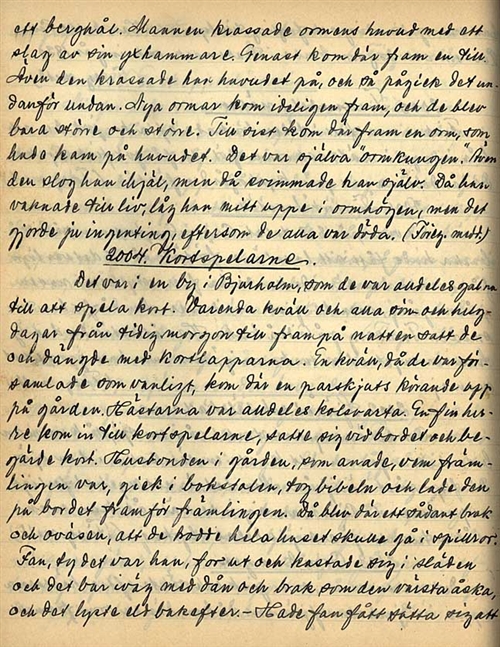 ett berghål. Mannen krassade ormens huvud med ett
slag av sin yxhammare. Genast kom där fram en till.
Även den krassade han huvudet på, och så pågick det un-
danför undan. Nya ormar kom ideligen fram, och de blev
bara större och större. Till sist kom där fram en orm, som
hade kam på huvudet. Det var själva "ormkungen." Även
den slog han ihjäl, men då svimmade han själv. Då han
vaknade till liv, låg han mitt uppe i ormhögen, men det
gjorde ju ingenting, eftersom de alla var döda. (Föreg. medd.)
2004. Kortspelarne.
Det var i en by i Bjurholm, som de var alldeles galna
till att spela kort. Varenda kväll och alla sön- och helg-
dagar från tidig morgon till fram på natten satt de
och dängde med kortlapparna. En kväll, då de var för-
samlade som vanligt, kom där en parskjuts körande upp
på gården. Hästarna var alldeles kolsvarta. En fin her-
re kom in till kortspelarne, satte sig vid bordet och be-
gärde kort. Husbonden i gården, som anade, vem främ-
lingen var, gick i bokstolen, tog bibeln och lade den
på bordet framför främlingen. Då blev där ett sådant brak
och oväsen, att de trodde hela huset skulle gå i spillror.
Fan, ty det var han, for ut och kastade sig i släden
och det bar iväg med dån och brak som den värsta åska,
och det lyste eld bakefter – Hade fan fått sätta sig att